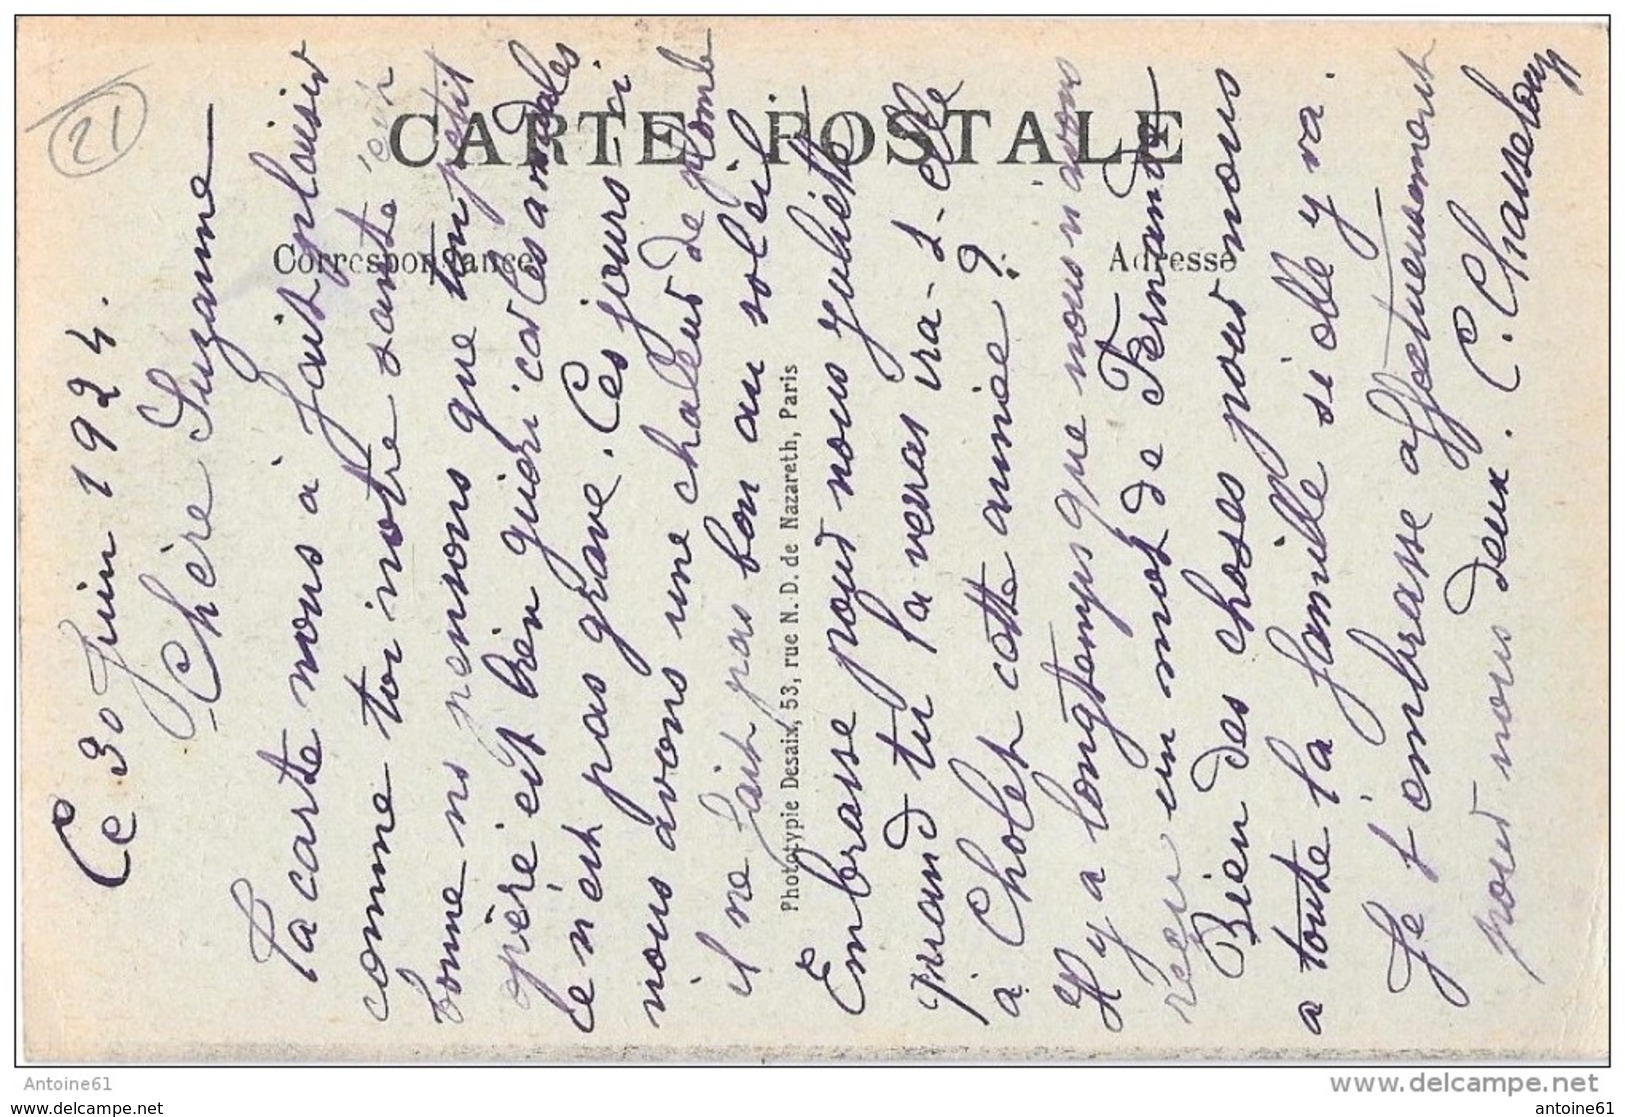 21
CARTE POSTALE
Correspondance
Adresse
Ce 30 Juin 1924.
Chère Suzanne
Ta carte nous a fait plaisir
comme toi notre santé est
bonne ns pensons que ton petit
opéré est bien guéri car les amydales
ce n'est pas grave. Ces jours-ci
nous avons une chaleur de plomb
il ne fait pas bon au soleil
Embrasse pour nous Juliette
quand tu la verras ira-t-elle
à Cholet cette année ?
Il y a longtemps que nous n'avons
réçu un mot de Fernande
Bien des choses pour nous
a toute la famille si elle y va.
Je t'embrasse affectueusement
pour nous deux. C. Chasseloup
Phototypie Desaix, 53, rue N.-D. de Nazareth, Paris
Antoine61
www.delcampe.net
antoine61
antoine61